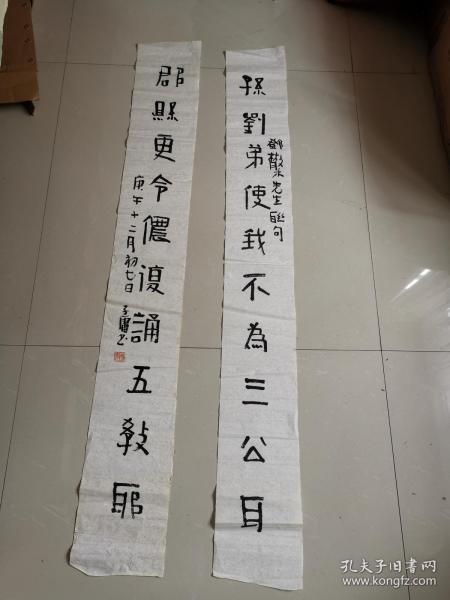 孫劉弟使我不為三公耳
鄧散木先生聯句
郡縣更令儂復誦五教耶
庚午十二月初七日
孔夫子旧书网
www.kongfz.com